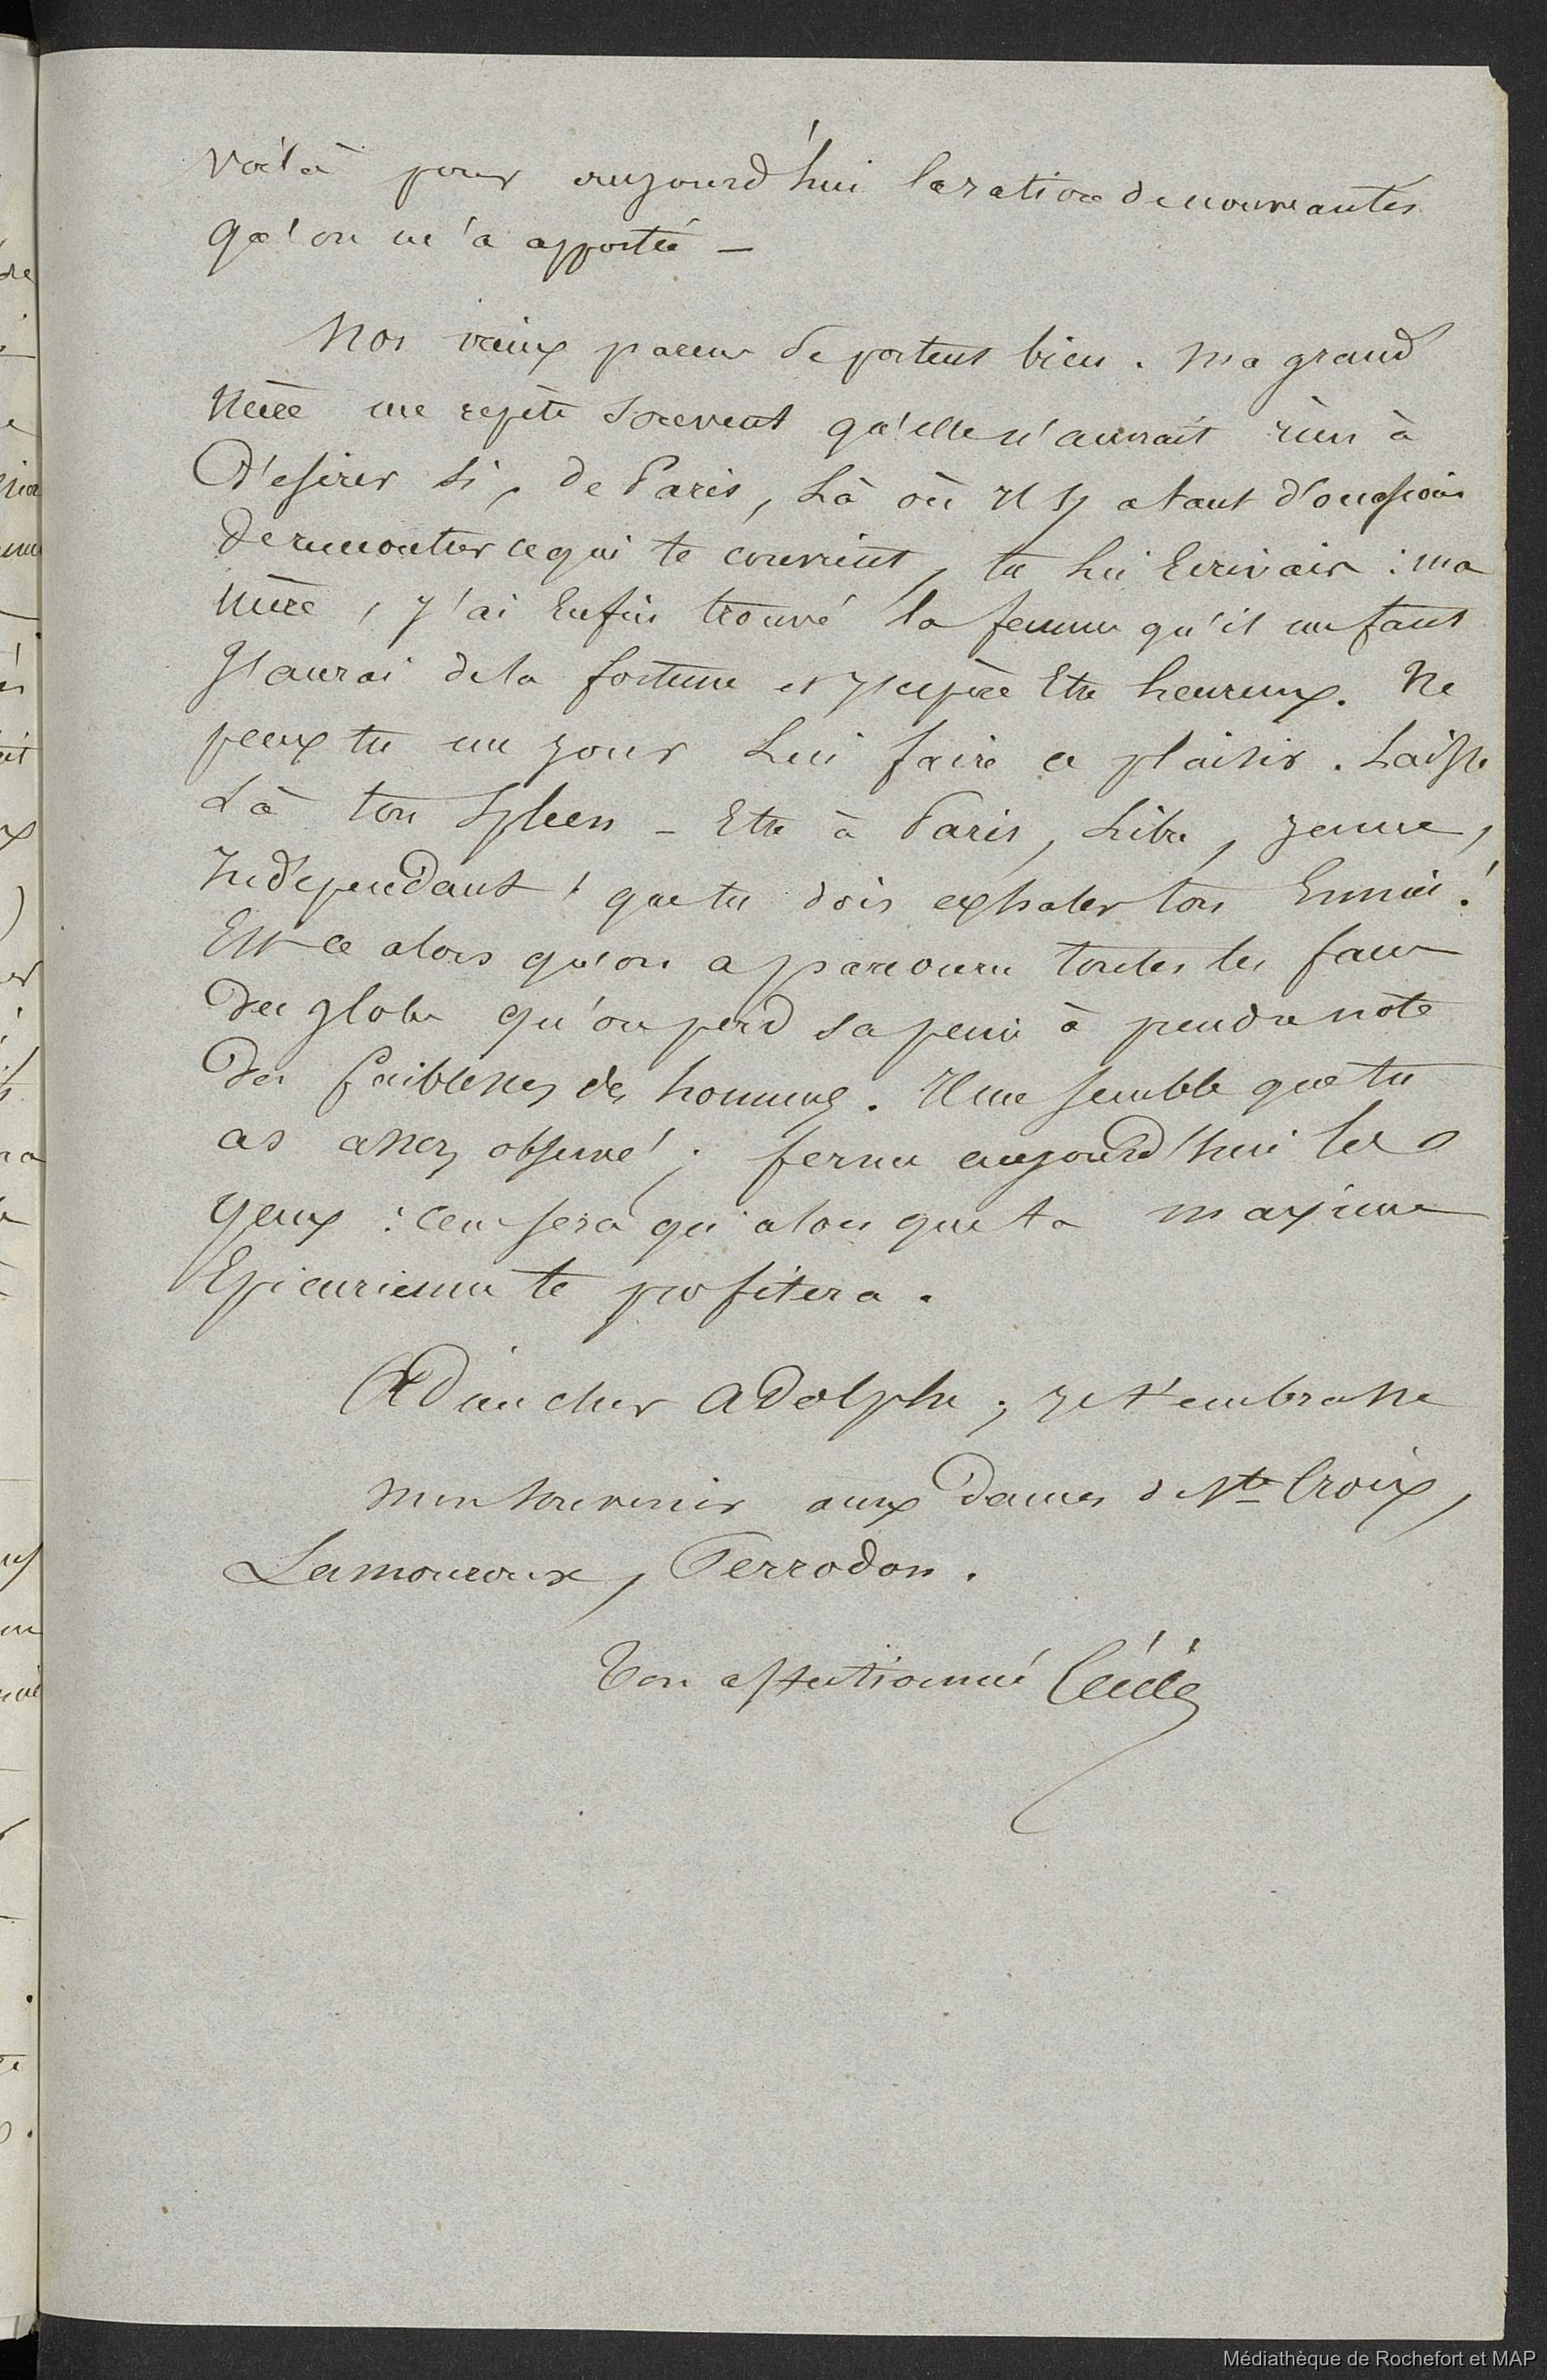 Voilà pour aujourd'hui la ration de nouveautés
qu'on m'a apportée —
Nos vieux parens se portent bien. Ma grand
Mère me repète souvent qu'elle n'aurait rien à
Désirer si, de Paris, Là où Il y a tant d'occasions
De rencontrer ce qui te convient, tu Lui Ecrivais : ma
Mère, J'ai Enfin trouvé la femme qu'il me faut
J'aurai de la fortune et J'espère Etre heureux. Ne
peux tu un jour Lui faire ce plaisir. Laisse
Là ton Spleen – Etre à Paris, Libre, jeune,
Indépendant ! que tu dois exhaler ton Ennui !
Est-ce alors qu'on a parcouru toutes les faces
Du globe qu'on perd sa peine à prendre note
Des faiblesses des hommes. Il me semble que tu
as assez observé ; ferme aujourd'hui les
yeux : ce ne sera qu'alors que ta maxime
Epicurienne te profitera.
Adieu cher Adolphe ; Je t'embrasse
Mon souvenir aux Dames de Ste Croix,
Lamouroux, Perrodon.
Ton affectionné
Médiathèque de Rochefort et MAP